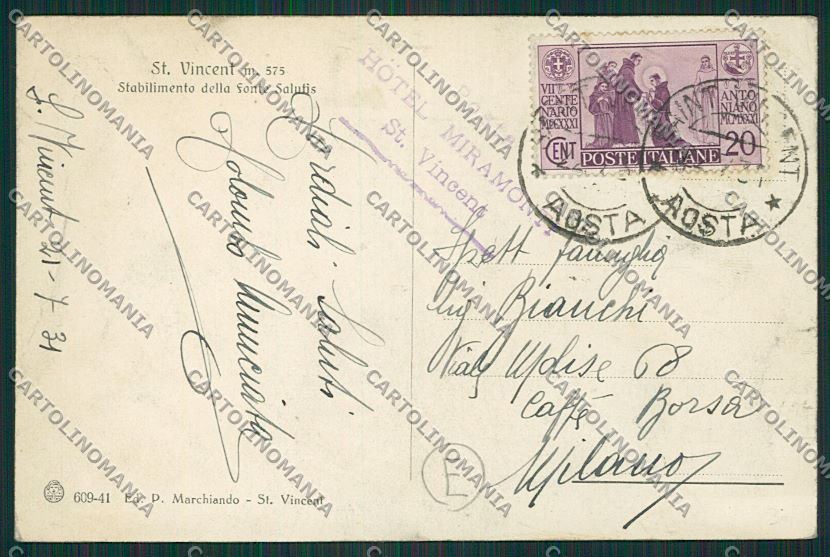 St. Vincent m. 575
Stabilimento della Fonte Salutis
S. Vincent 21-7-31
Cordiali Saluti
Colombo Annunciata
HÔTEL MIRAMONTI
St. Vincent
VII CENTENARIO MDCCCCXXXI
ANTONIANO MCMXXXI
CENT 20
POSTE ITALIANE
AOSTA
AOSTA
Spett famiglia
Sig Bianchi
Viale Molise 68
Caffè Borsa
Milano
E
609-41 Ed. P. Marchiando - St. Vincent
CARTOLINOMANIA